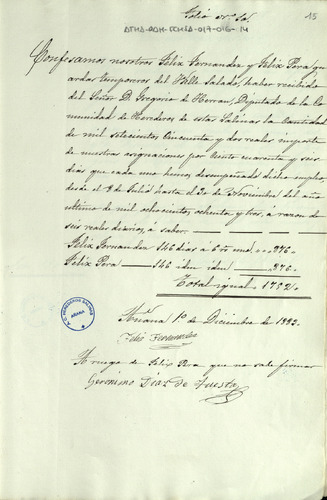 15
Folio nº 58.
ATHA-DAH-FCHSA-017-016-14
Confesamos nosotros Felix Fernandez y Felix Pera, gu-
ardas temporeros del Valle Salado, haber recibido
del Señor D. Gregorio de Herran, Deputado de la Co-
munidad de Herederos de estas Salinas la Cantidad
de mil setecientos Cincuenta y dos reales importe
de nuestras asignaciones por Ciento cuarenta y seis
dias que cada uno hemos desempeñado dicho empleo
desde el 8 de Julio hasta el 30 de Noviembre del año
ultimo de mil ochocientos ochenta y tres, á razon de
seis reales diarios, á saber
Felix Fernandez 146 dias a 6 rs uno 876 "
Felix Pera 146 idem idem 876 "
Total igual 1752 "
Añana 1º de Diciembre de 1883
Felix Fernandez
A ruego de Felix Pera que no sabe firmar
Geronimo Diaz de Tuesta
A.C. HEREDEROS SALINAS
AÑANA